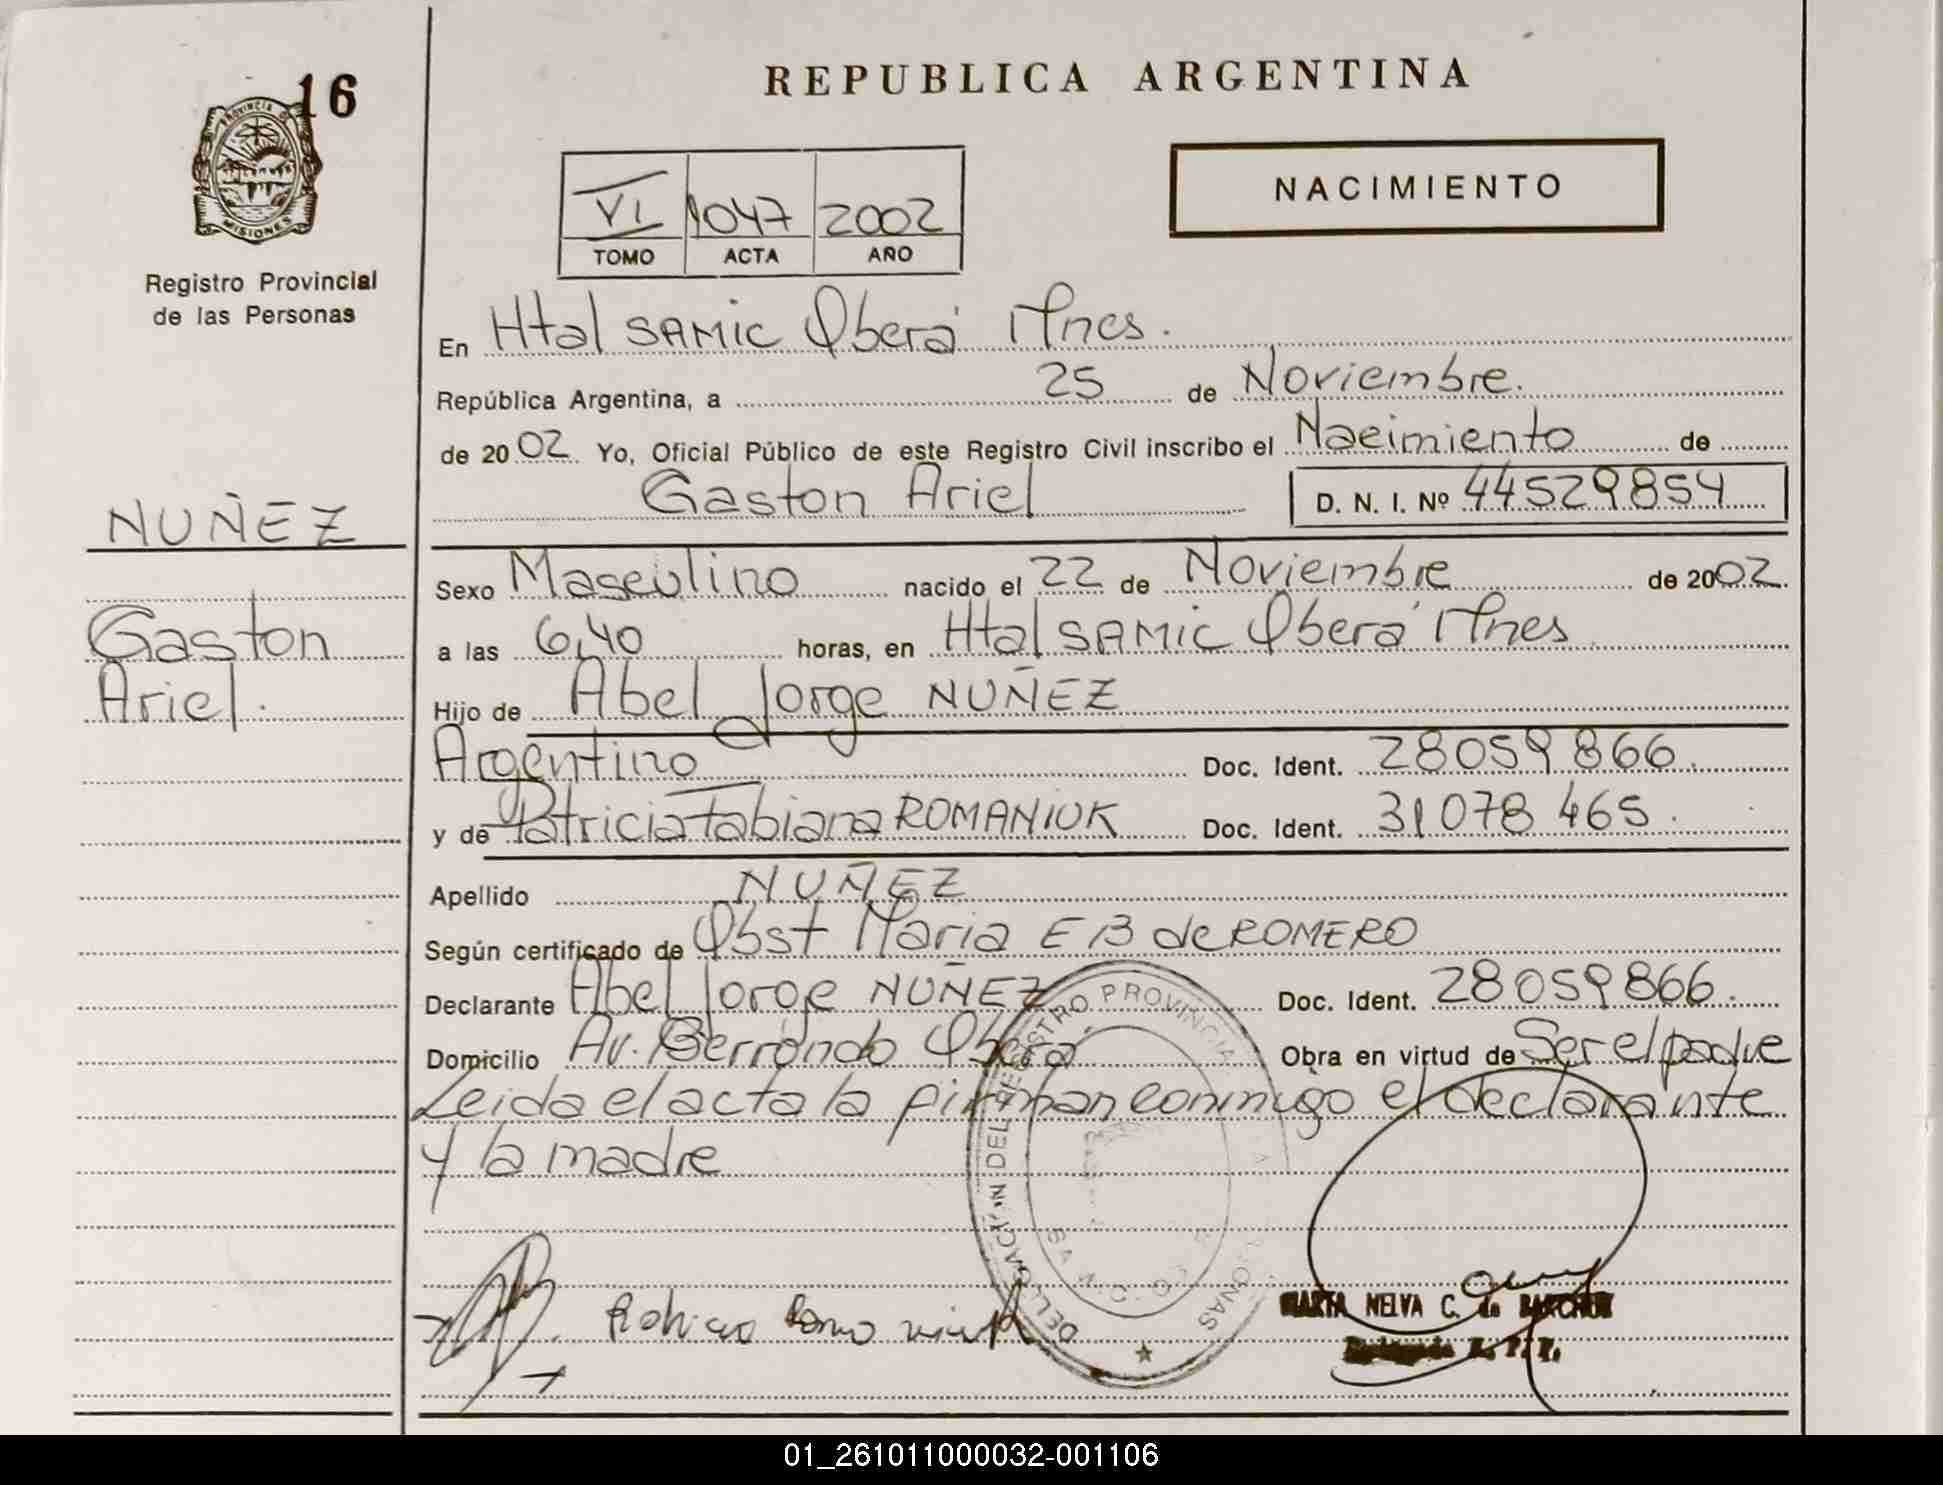 16
PROVINCIA DE
MISIONES
Registro Provincial
de las Personas
NUÑEZ
Gaston
Ariel.
REPUBLICA ARGENTINA
VI 1047 2002
TOMO ACTA AÑO
NACIMIENTO
En Htal SAMIC Oberá Mnes.
República Argentina, a 25 de Noviembre.
de 2002 Yo, Oficial Público de este Registro Civil inscribo el Nacimiento de
Gaston Ariel D. N. I. Nº 44529854
Sexo Masculino nacido el 22 de Noviembre de 2002.
a las 6,40 horas, en Htal SAMIC Oberá Mnes
Hijo de Abel Jorge NUÑEZ
Argentino Doc. Ident. 28059866.
y de Patricia Fabiana ROMANIUK Doc. Ident. 31078465.
Apellido NUÑEZ
Según certificado de Obst Maria E B de ROMERO
Declarante Abel Jorge NUÑEZ Doc. Ident. 28059866.
Domicilio Av. Berrondo Oberá Obra en virtud de Ser el padre
Leida el acta la firman conmigo el declarante
y la madre
REGISTRO PROVINCIAL
MARTA NELVA C. de
R. P. P.
01_261011000032-001106